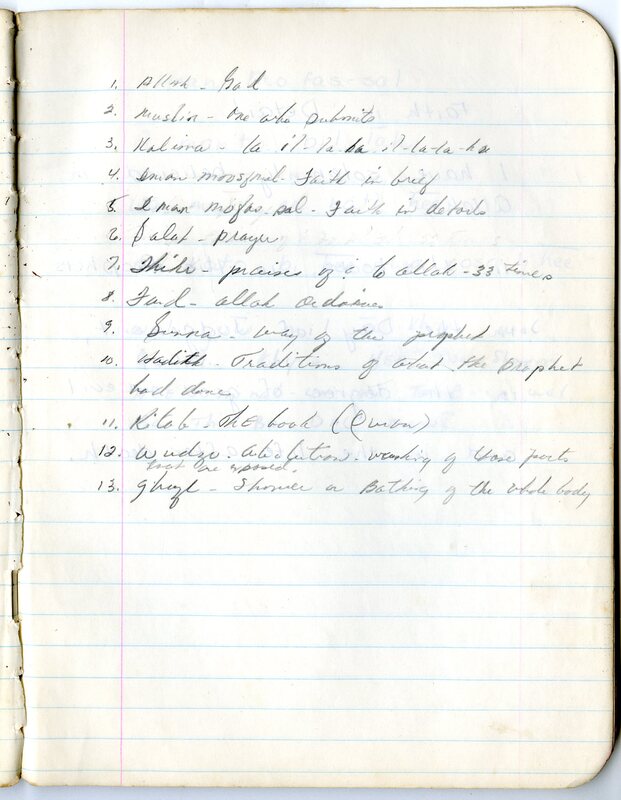 1. Allah - God
2. Muslim - One who submits
3. Kalima - la il-la ha il-la-la-ha
4. Iman moosgmal - Faith in brief
5. Iman mofas-sal - Faith in details
6. Salat - prayer
7. Thikr - praises of : to allah - 33 times
8. Fard - allah ordaines
9. Sunna - way of the prophet
10. Hadith - Traditions of what the prophet
had done
11. Kitab - The book (Quran)
12. Wudzu - abolution - washing of those parts
that are exposed.
13. ghuzl - Shower or Bathing of the whole body